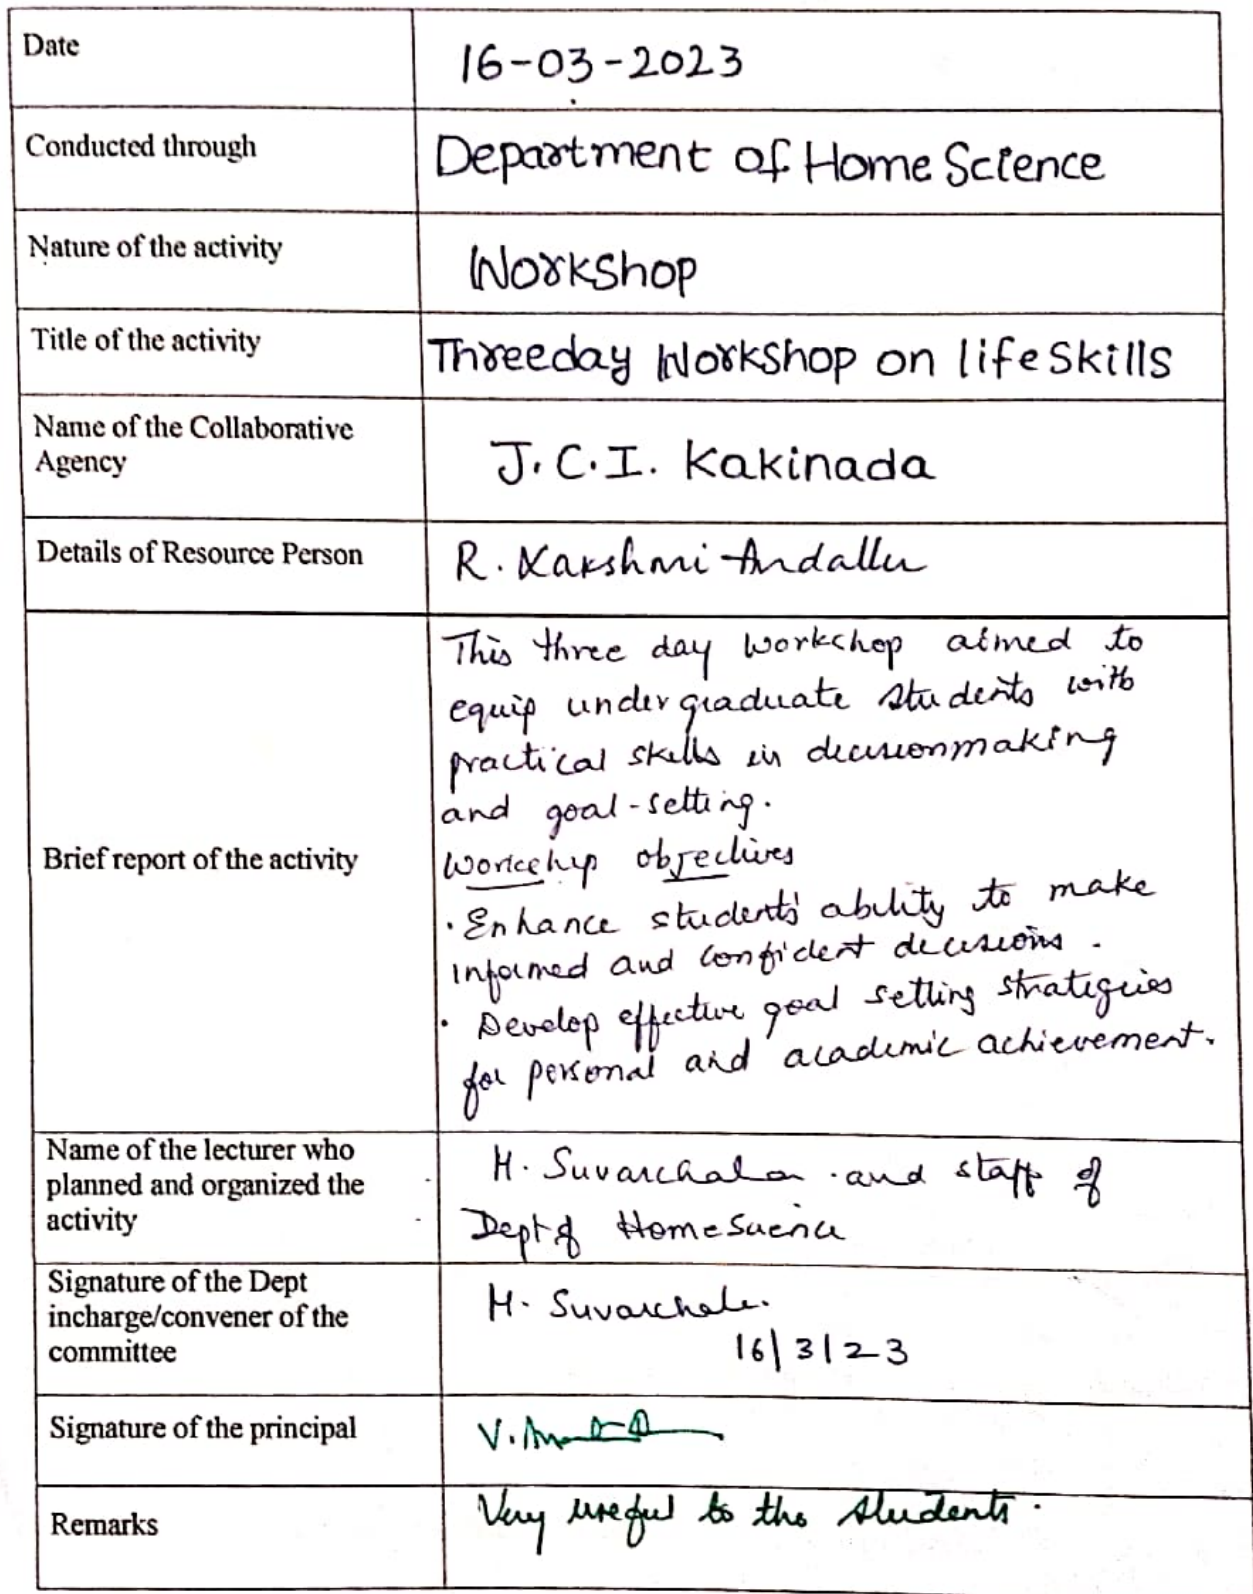 Date
16-03-2023
Conducted through
Department of Home Science
Nature of the activity
Workshop
Title of the activity
Threeday Workshop on life Skills
Name of the Collaborative
Agency
J.C.I. Kakinada
Details of Resource Person
R. Lakshmi Andallu
Brief report of the activity
This three day workshop aimed to
equip undergraduate students with
practical skills in decisionmaking
and goal-setting.
Workshop objectives
· Enhance students' ability to make
informed and confident decisions.
· Develop effective goal setting strategies
for personal and academic achievement.
Name of the lecturer who
planned and organized the
activity
H. Suvarchala and staff of
Dept of Home Science
Signature of the Dept
incharge/convener of the
committee
H. Suvarchala.
16/3/23
Signature of the principal
V.
Remarks
Very useful to the students.